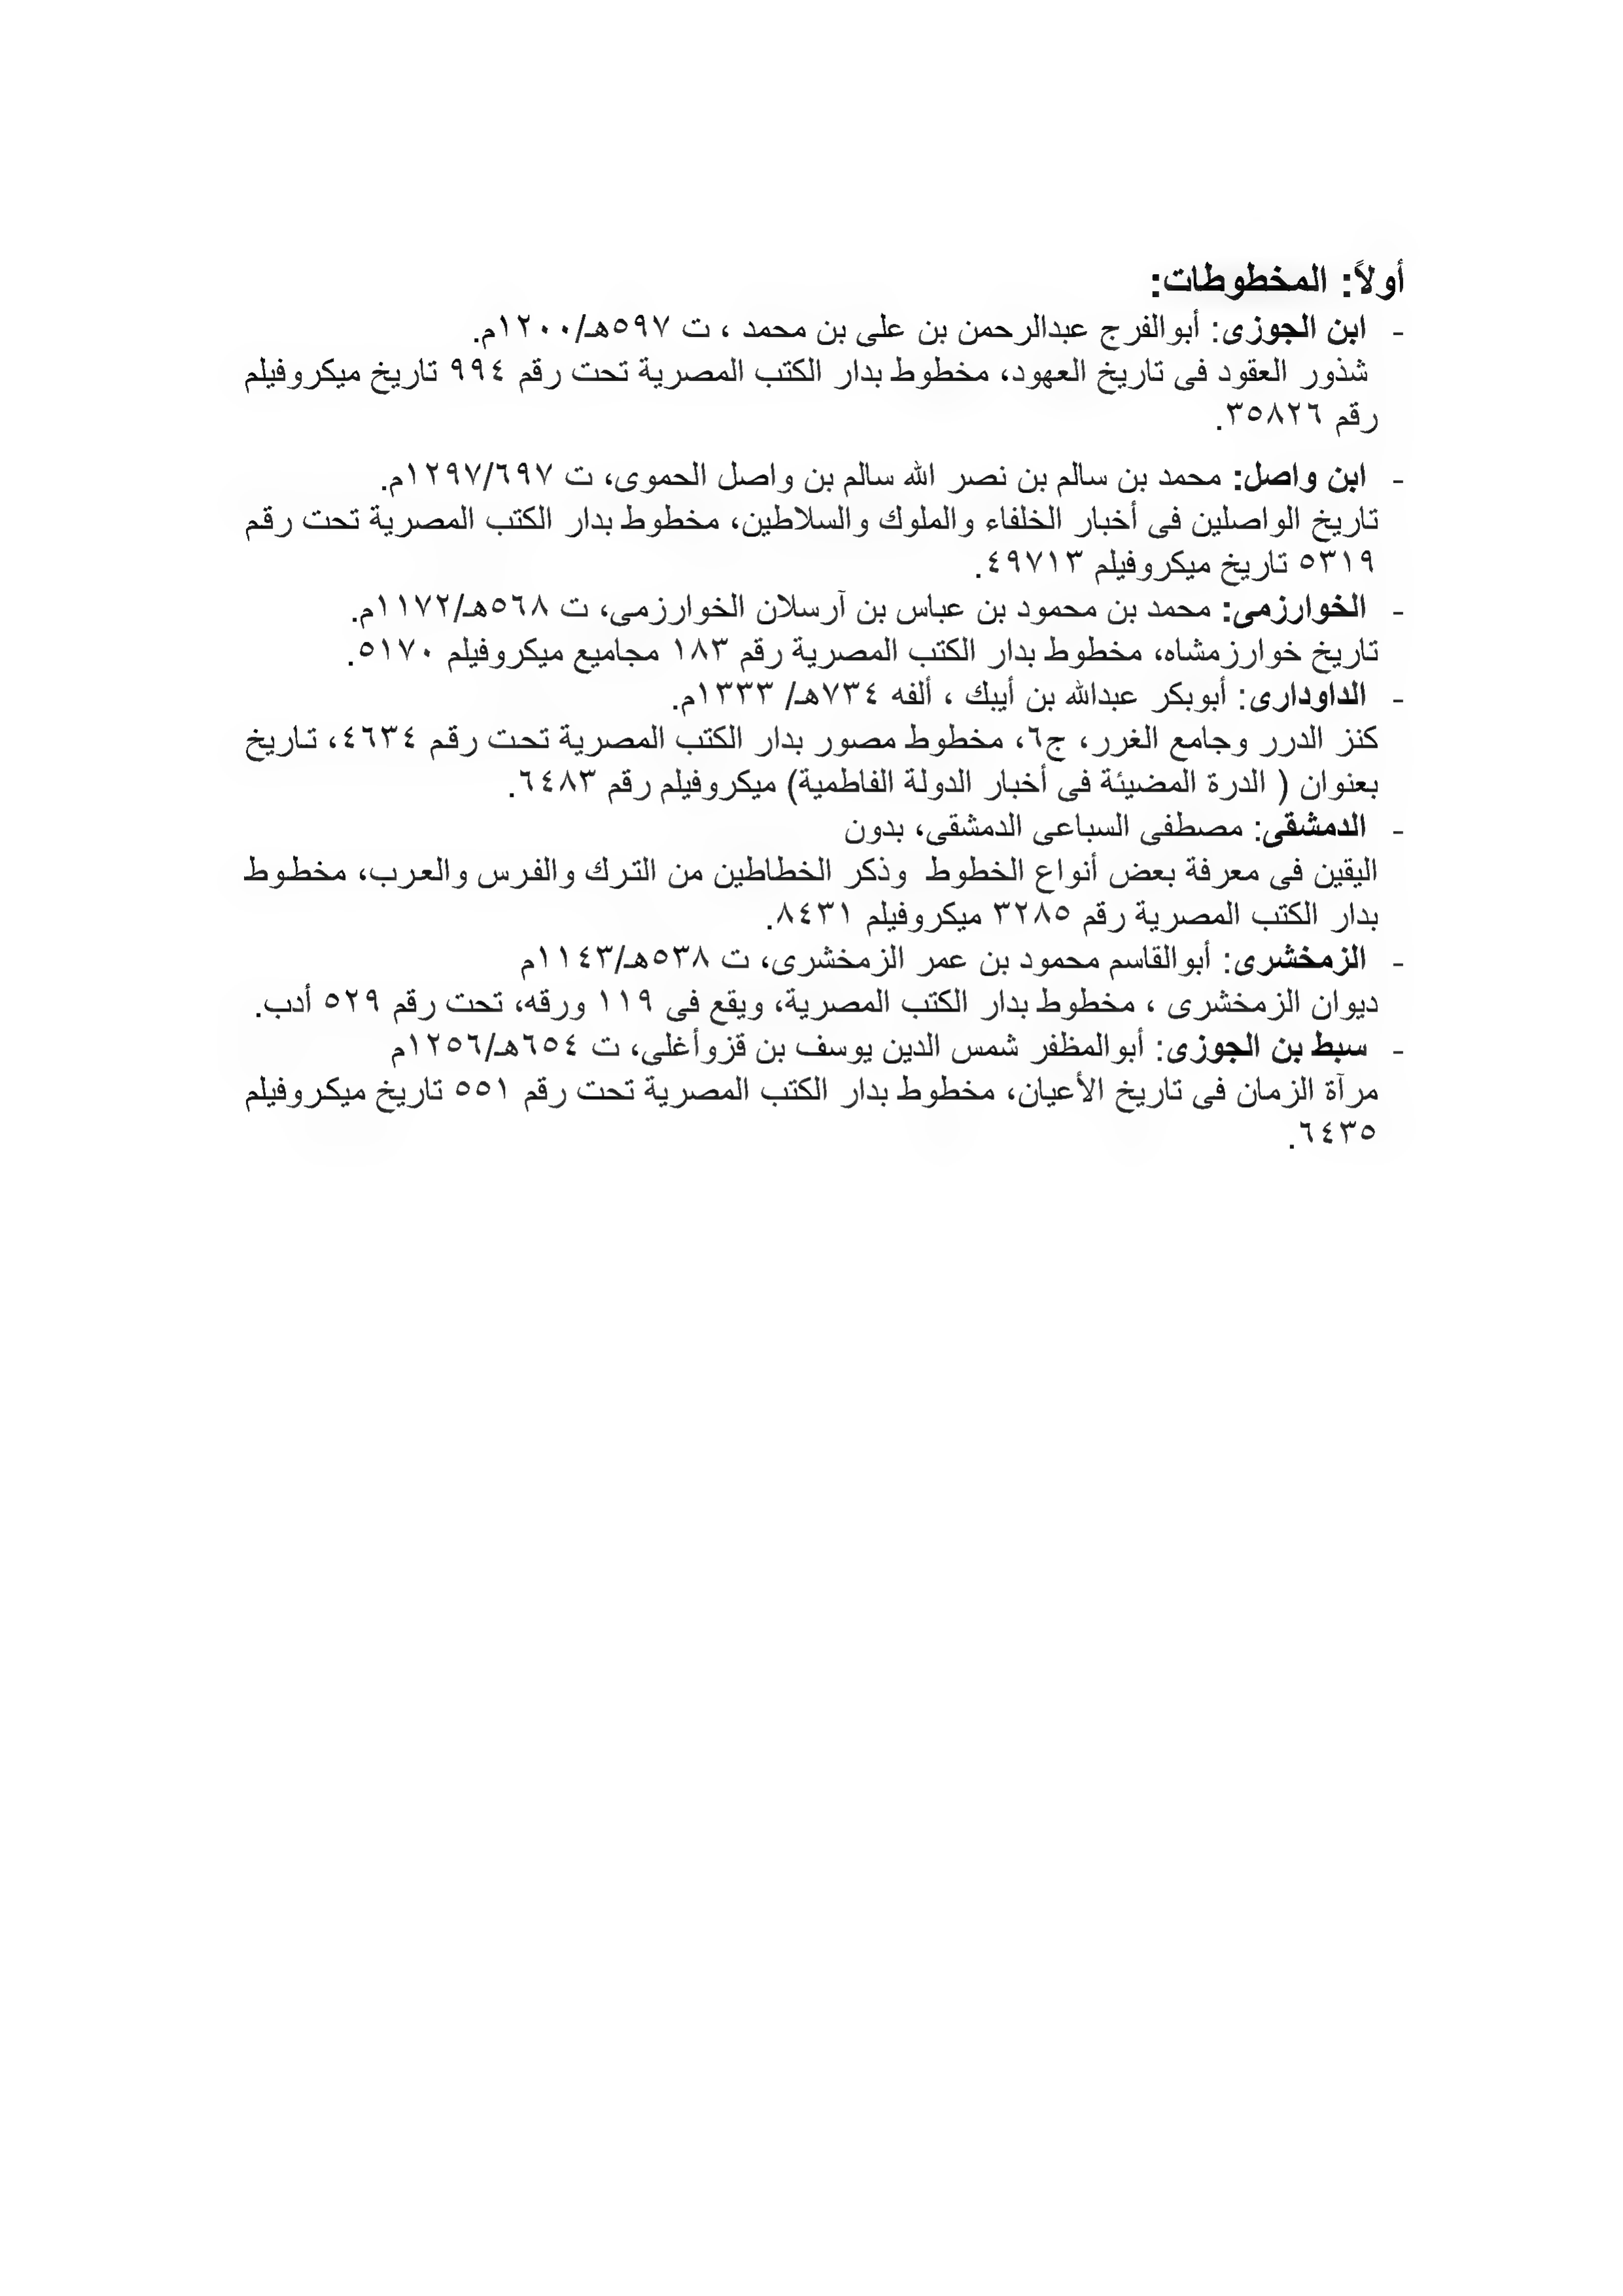 أولاً: المخطوطات:
- ابن الجوزى: أبوالفرج عبدالرحمن بن على بن محمد ، ت ٥٩٧هـ/١٢٠٠م.
شذور العقود فى تاريخ العهود، مخطوط بدار الكتب المصرية تحت رقم ٩٩٤ تاريخ ميكروفيلم
رقم ٣٥٨٢٦.
- ابن واصل: محمد بن سالم بن نصر الله سالم بن واصل الحموى، ت ١٢٩٧/٦٩٧م.
تاريخ الواصلين فى أخبار الخلفاء والملوك والسلاطين، مخطوط بدار الكتب المصرية تحت رقم
٥٣١٩ تاريخ ميكروفيلم ٤٩٧١٣.
- الخوارزمى: محمد بن محمود بن عباس بن آرسلان الخوارزمى، ت ٥٦٨هـ/١١٧٢م.
تاريخ خوارزمشاه، مخطوط بدار الكتب المصرية رقم ١٨٣ مجاميع ميكروفيلم ٥١٧٠.
- الداودارى: أبوبكر عبدالله بن أيبك ، ألفه ٧٣٤هـ/ ١٣٣٣م.
كنز الدرر وجامع الغرر، ج٦، مخطوط مصور بدار الكتب المصرية تحت رقم ٤٦٣٤، تاريخ
بعنوان ( الدرة المضيئة فى أخبار الدولة الفاطمية) ميكروفيلم رقم ٦٤٨٣.
- الدمشقى: مصطفى السباعى الدمشقى، بدون
اليقين فى معرفة بعض أنواع الخطوط وذكر الخطاطين من الترك والفرس والعرب، مخطوط
بدار الكتب المصرية رقم ٣٢٨٥ ميكروفيلم ٨٤٣١.
- الزمخشرى: أبوالقاسم محمود بن عمر الزمخشرى، ت ٥٣٨هـ/١١٤٣م
ديوان الزمخشرى ، مخطوط بدار الكتب المصرية، ويقع فى ١١٩ ورقه، تحت رقم ٥٢٩ أدب.
- سبط بن الجوزى: أبوالمظفر شمس الدين يوسف بن قزوأغلى، ت ٦٥٤هـ/١٢٥٦م
مرآة الزمان فى تاريخ الأعيان، مخطوط بدار الكتب المصرية تحت رقم ٥٥١ تاريخ ميكروفيلم
٦٤٣٥.